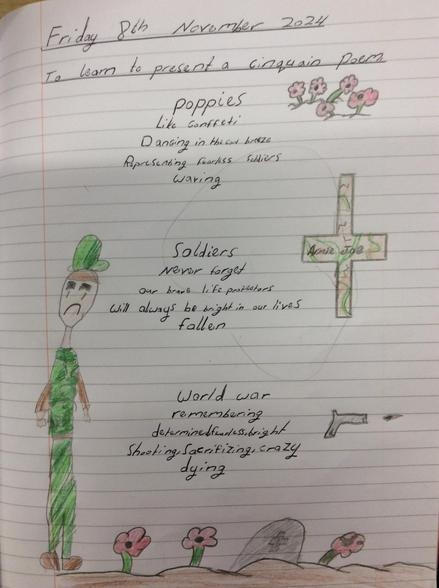 Friday 8th November 2024
To learn to present a cinquain poem
poppies
Like confeti
Dancing in the cool breeze
Representing fearless soldiers
waving
Soldiers
Never forget
our brave life protectors
will always be bright in our lives
fallen
World war
remembering
determined,fearless,bright
Shooting,Sacrifizing,crazy
dying